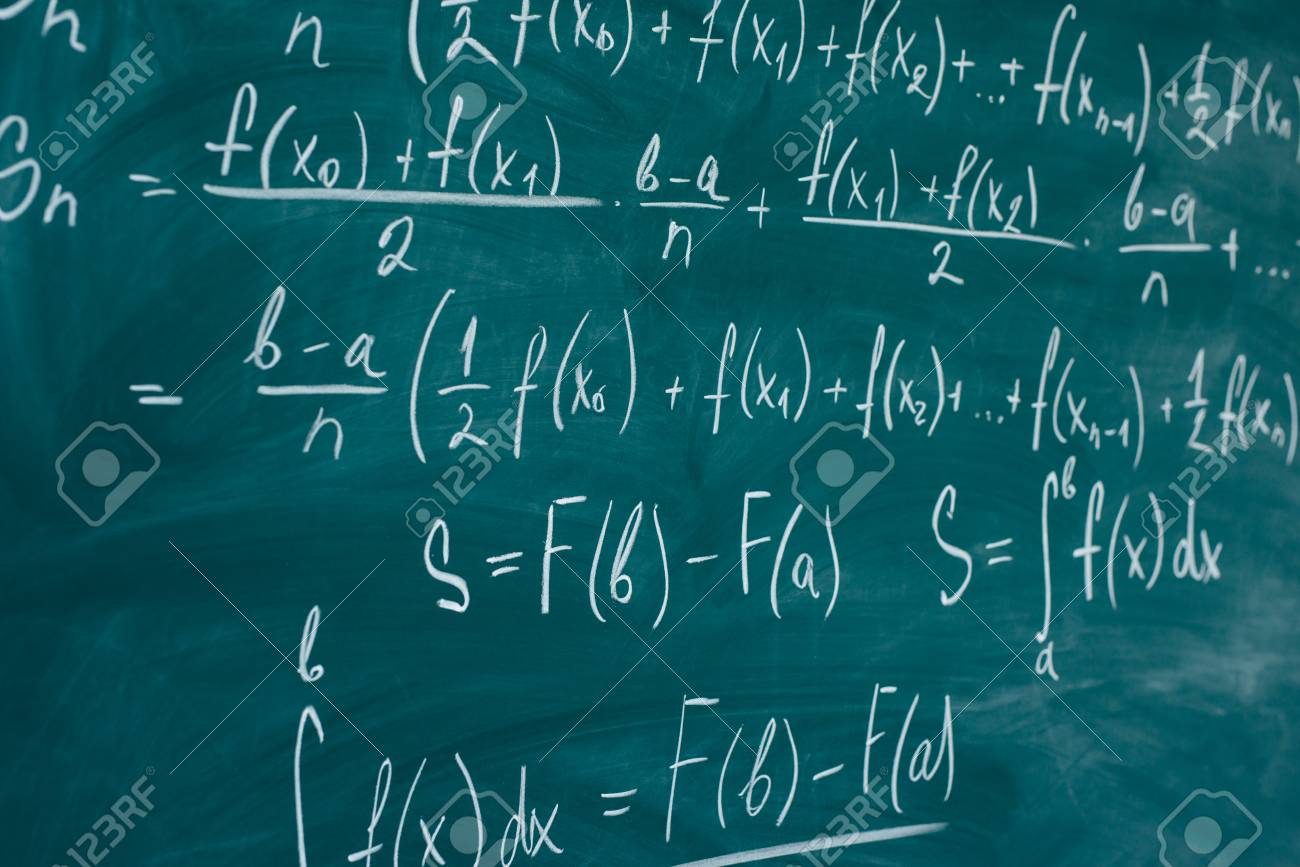 n n (1/2 f(x₀) + f(x₁) + f(x₂) + ... + f(xₙ₋₁) + 1/2 f(xₙ
Sₙ = (f(x₀) + f(x₁))/2 · (b-a)/n + (f(x₁) + f(x₂))/2 · (b-a)/n + ...
= (b-a)/n (1/2 f(x₀) + f(x₁) + f(x₂) + ... + f(xₙ₋₁) + 1/2 f(xₙ)
S = F(b) - F(a) S = ∫ₐᵇ f(x)dx
∫ᵇ f(x)dx = F(b) - F(a)
123RF
123RF
123RF
123RF
123RF
123RF
123RF
123RF